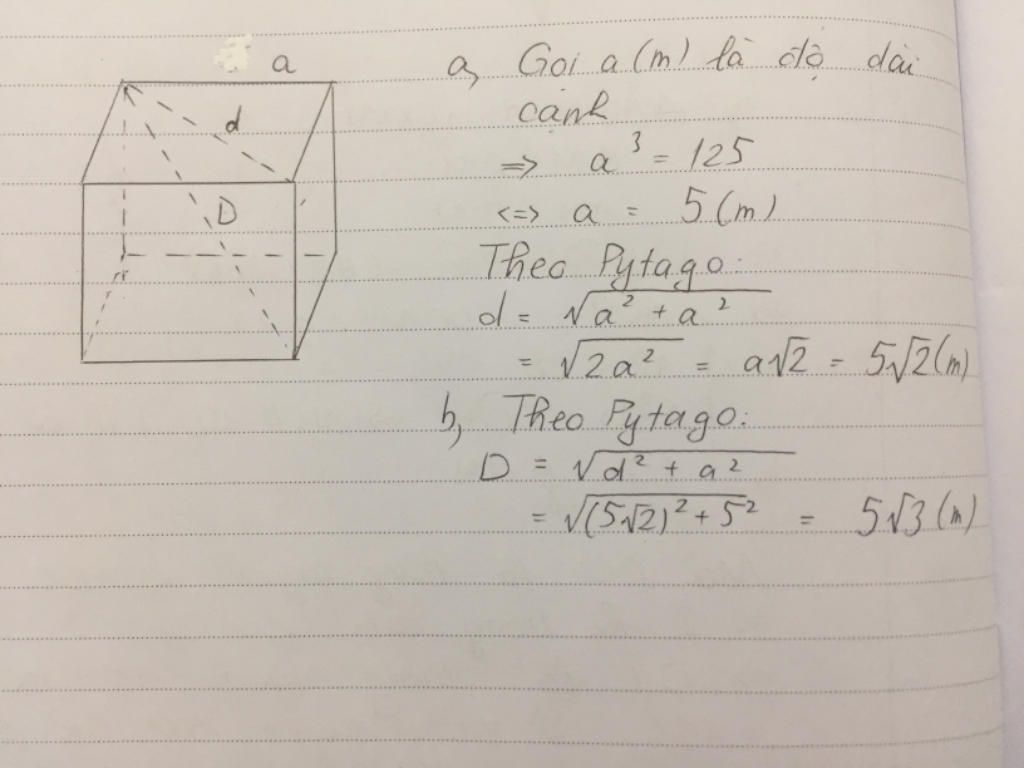 a
d
D
a, Gọi a (m) là độ dài
cạnh
=> a³ = 125
<=> a = 5 (m)
Theo Pytago:
d = √(a² + a²)
= √(2a²) = a√2 = 5√2 (m)
b, Theo Pytago:
D = √(d² + a²)
= √((5√2)² + 5²) = 5√3 (m)